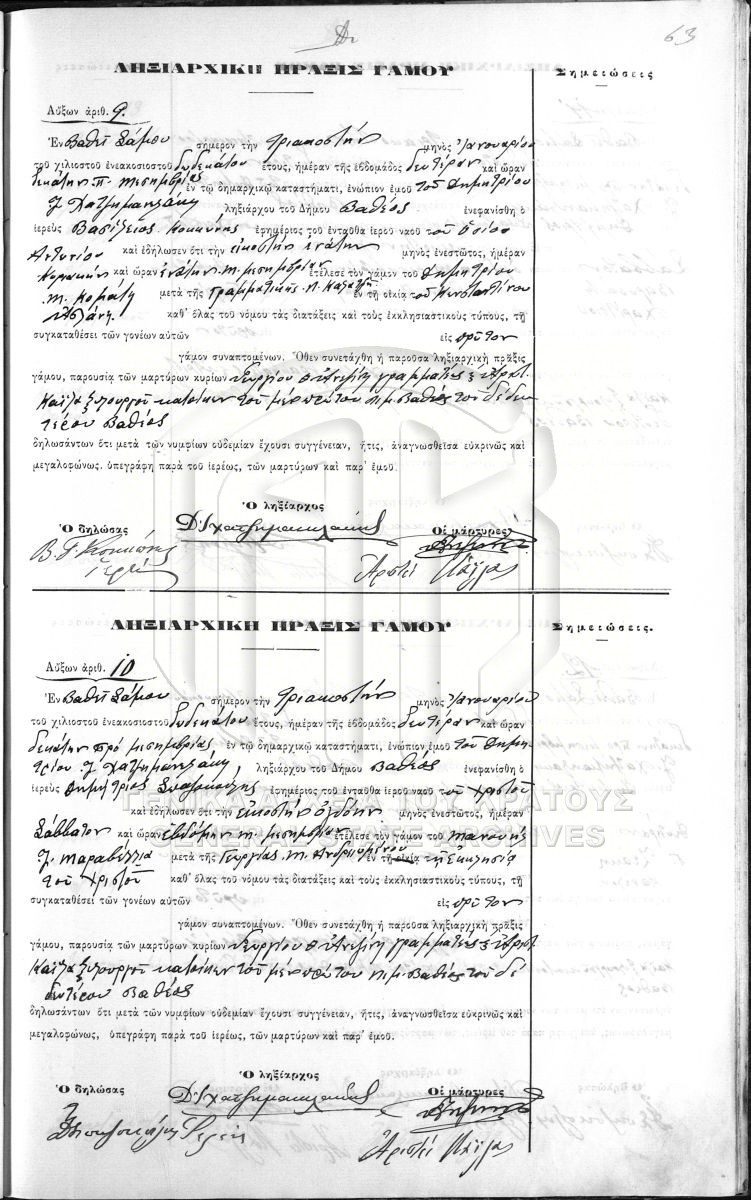 63
ΛΗΞΙΑΡΧΙΚΗ ΠΡΑΞΙΣ ΓΑΜΟΥ
Σημειώσεις
Αὔξων ἀριθ. 9.
Ἐν Βαθεῖ Σάμου σήμερον τὴν τριακοστὴν μηνὸς Ἰανουαρίου
τοῦ χιλιοστοῦ ἐνεακοσιοστοῦ δωδεκάτου ἔτους, ἡμέραν τῆς ἑβδομάδος Δευτέραν καὶ ὥραν
δεκάτην π. μεσημβρίας ἐν τῷ δημαρχικῷ καταστήματι, ἐνώπιον ἐμοῦ τοῦ Δημητρίου
Ι. Χατζημανωλάκη ληξιάρχου τοῦ Δήμου Βαθέος ἐνεφανίσθη ὁ
ἱερεὺς Βασίλειος ἐφημέριος τοῦ ἐνταῦθα ἱεροῦ ναοῦ τοῦ Ὁσίου
Ἀντωνίου καὶ ἐδήλωσεν ὅτι τὴν εἰκοστὴν ἐνάτην μηνὸς ἐνεστῶτος, ἡμέραν
Κυριακὴν καὶ ὥραν ἐνάτην μ. μεσημβρίαν ἐτέλεσε τὸν γάμον τοῦ Δημητρίου
Μ. Κομάτη μετὰ τῆς Γραμματικῆς Λ. ἐν τῇ οἰκίᾳ τοῦ Κωνσταντίνου
Ἀσλάνη καθ' ὅλας τοῦ νόμου τὰς διατάξεις καὶ τοὺς ἐκκλησιαστικοὺς τύπους, τῇ
συγκαταθέσει τῶν γονέων αὐτῶν εἰς πρῶτον
γάμον συναπτομένων. Ὅθεν συνετάχθη ἡ παροῦσα ληξιαρχικὴ πρᾶξις
γάμου, παρουσίᾳ τῶν μαρτύρων κυρίων Γεωργίου γραμματέως & Ἀριστ.
Καΐλα ξυλουργοῦ κατοίκων τοῦ μὲν πρώτου Κ.μ. Βαθέος τοῦ δὲ δευ
τέρου Βαθέος
δηλωσάντων ὅτι μετὰ τῶν νυμφίων οὐδεμίαν ἔχουσι συγγένειαν, ἥτις, ἀναγνωσθεῖσα εὐκρινῶς καὶ
μεγαλοφώνως, ὑπεγράφη παρὰ τοῦ ἱερέως, τῶν μαρτύρων καὶ παρ' ἐμοῦ.
Ὁ ληξίαρχος
Ὁ δηλώσας Δ. Ι. Χατζημανωλάκης Οἱ μάρτυρες
Ἀριστ. Καΐλας
ΛΗΞΙΑΡΧΙΚΗ ΠΡΑΞΙΣ ΓΑΜΟΥ
Σημειώσεις.
Αὔξων ἀριθ. 10
Ἐν Βαθεῖ Σάμου σήμερον τὴν τριακοστὴν μηνὸς Ἰανουαρίου
τοῦ χιλιοστοῦ ἐνεακοσιοστοῦ δωδεκάτου ἔτους, ἡμέραν τῆς ἑβδομάδος Δευτέραν καὶ ὥραν
δεκάτην πρὸ μεσημβρίας ἐν τῷ δημαρχικῷ καταστήματι, ἐνώπιον ἐμοῦ τοῦ Δημη
τρίου Ι. Χατζημανωλάκη, ληξιάρχου τοῦ Δήμου Βαθέος ἐνεφανίσθη ὁ
ἱερεὺς Δημήτριος ἐφημέριος τοῦ ἐνταῦθα ἱεροῦ ναοῦ τοῦ Χριστοῦ
καὶ ἐδήλωσεν ὅτι τὴν εἰκοστὴν ὀγδόην μηνὸς ἐνεστῶτος, ἡμέραν
Σάββατον καὶ ὥραν ἑβδόμην μ. μεσημβρίαν ἐτέλεσε τὸν γάμον τοῦ Μανουὴλ
Ι. Μαραβέλια μετὰ τῆς Γεωργίας Μ. ἐν τῇ οἰκίᾳ τῇ ἐκκλησίᾳ
τοῦ Χριστοῦ καθ' ὅλας τοῦ νόμου τὰς διατάξεις καὶ τοὺς ἐκκλησιαστικοὺς τύπους, τῇ
συγκαταθέσει τῶν γονέων αὐτῶν εἰς πρῶτον
γάμον συναπτομένων. Ὅθεν συνετάχθη ἡ παροῦσα ληξιαρχικὴ πρᾶξις
γάμου, παρουσίᾳ τῶν μαρτύρων κυρίων Γεωργίου γραμματέως & Ἀριστ.
Καΐλα ξυλουργοῦ κατοίκων τοῦ μὲν πρώτου Κ.μ. Βαθέος τοῦ δὲ
δευτέρου Βαθέος
δηλωσάντων ὅτι μετὰ τῶν νυμφίων οὐδεμίαν ἔχουσι συγγένειαν, ἥτις, ἀναγνωσθεῖσα εὐκρινῶς καὶ
μεγαλοφώνως, ὑπεγράφη παρὰ τοῦ ἱερέως, τῶν μαρτύρων καὶ παρ' ἐμοῦ.
Ὁ ληξίαρχος
Ὁ δηλώσας Δ. Ι. Χατζημανωλάκης Οἱ μάρτυρες
Ἀριστ. Καΐλας
ΓΕΝΙΚΑ ΑΡΧΕΙΑ ΤΟΥ ΚΡΑΤΟΥΣ